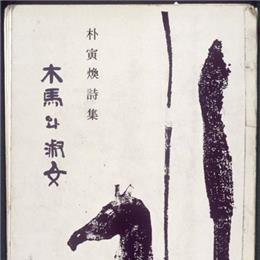 朴寅煥詩集
木馬와 淑女